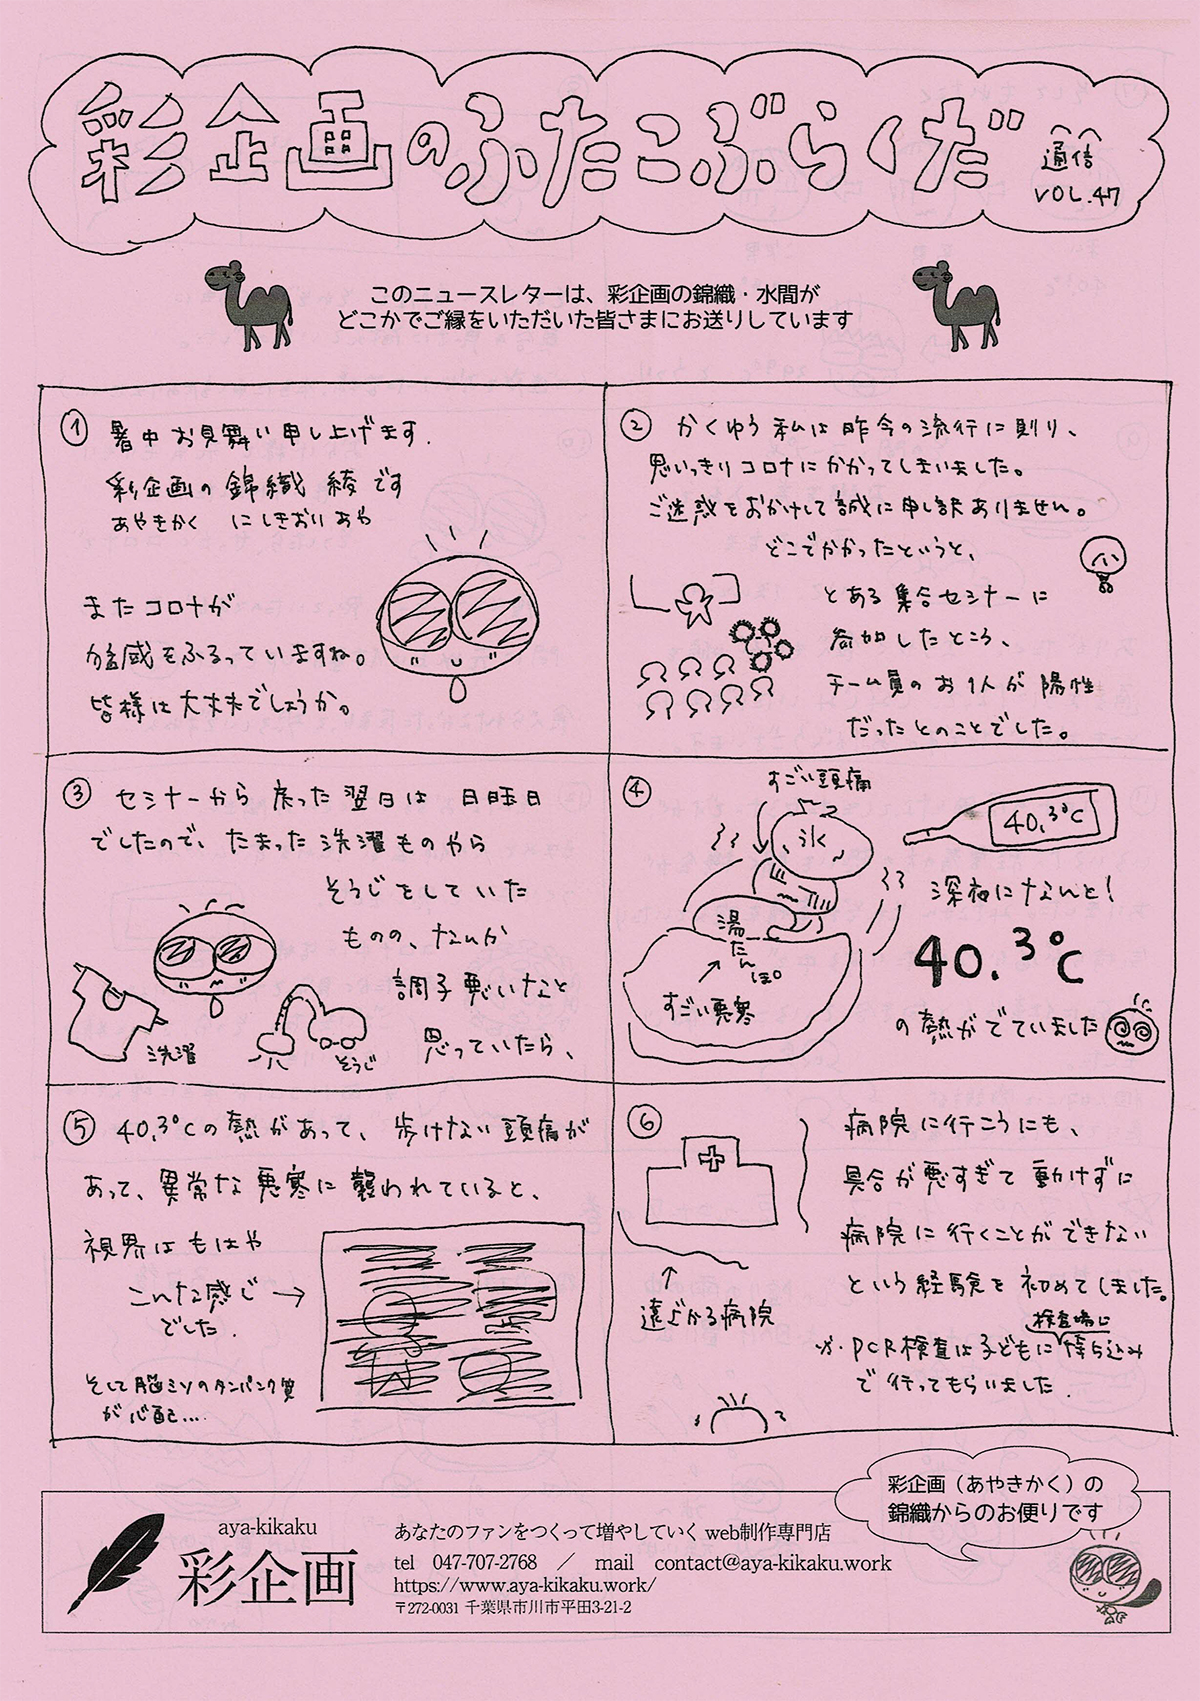 彩企画のふたこぶらくだ通信
VOL.47
このニュースレターは、彩企画の錦織・水間が
どこかでご縁をいただいた皆さまにお送りしています
① 暑中お見舞い申し上げます.
彩企画の錦織 綾です
あやきかく にしきおりあや
またコロナが
猛威をふるっていますね。
皆様は大丈夫でしょうか。
② かくゆう私は昨今の流行に則り、
思いっきりコロナにかかってしまいました。
ご迷惑をおかけして誠に申し訳ありません。
どこでかかったというと、
とある集合セミナーに
参加したところ、
チーム員のお1人が陽性
だったとのことでした。
③ セミナーから戻った翌日は日曜日
でしたので、たまった洗濯ものやら
そうじをしていた
ものの、なんか
調子悪いなと
思っていたら、
洗濯
そうじ
④
すごい頭痛
氷
湯たんぽ
すごい悪寒
40.3℃
深夜になんと!
40.3℃
の熱がでていました
⑤ 40.3℃の熱があって、歩けない頭痛が
あって、異常な悪寒に襲われていると、
視界はもはや
こんな感じ→
でした.
そして脳ミソのタンパク質
が心配...
⑥
病院に行こうにも、
具合が悪すぎて動けずに
病院に行くことができない
という経験を初めてしました。
遠ざかる病院
検査場に
が・PCR検査は子どもに持ち込み
で行ってもらいました.
彩企画（あやきかく）の
錦織からのお便りです
aya-kikaku
彩企画
あなたのファンをつくって増やしていくweb制作専門店
tel 047-707-2768 ／ mail contact@aya-kikaku.work
https://www.aya-kikaku.work/
〒272-0031 千葉県市川市平田3-21-2